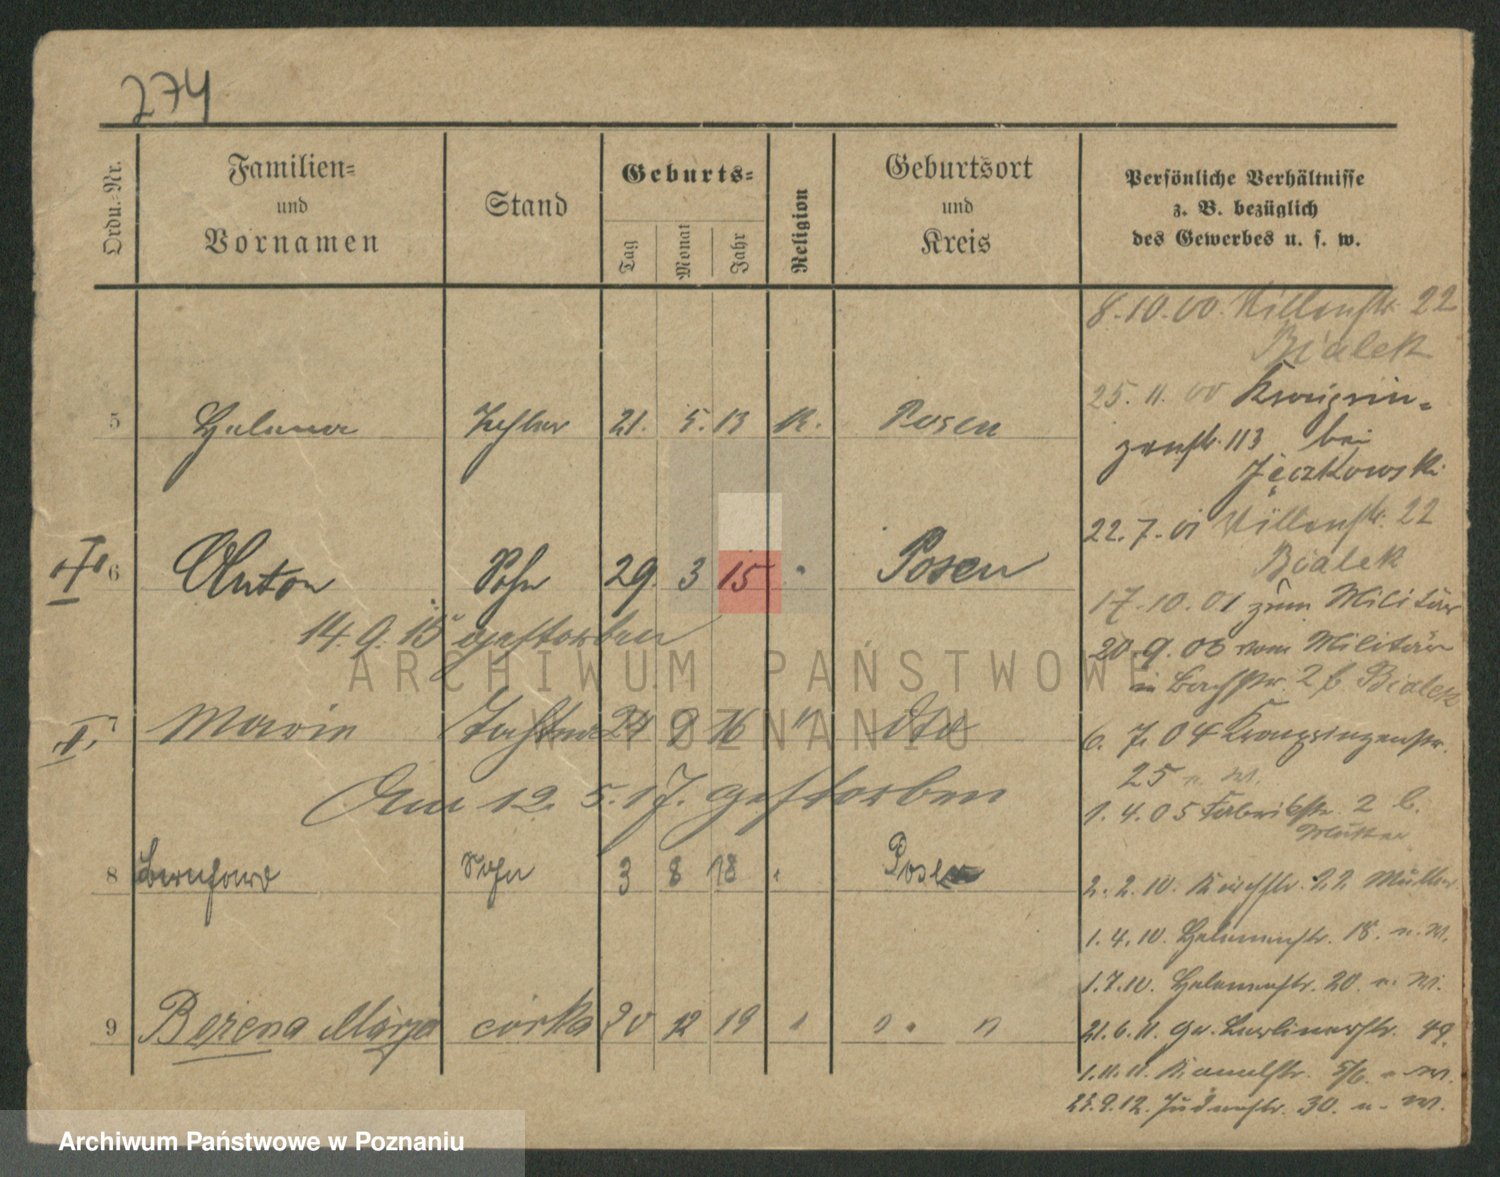 274
Ordn.-Nr.
Familien-
und
Vornamen
Stand
Geburts-
Tag
Monat
Jahr
Religion
Geburtsort
und
Kreis
Persönliche Verhältnisse
z. B. bezüglich
des Gewerbes u. s. w.
5 Helena Tochter 21. 5. 13 K. Posen
I 6 Anton Sohn 29. 3 15 " Posen
14. 9. 15 gestorben
II. 7 Marie Tochter 24 8 16 " dto
Am 12. 5. 17. gestorben
8 Bernhard Sohn 3 8 18 " Posen
9 Bożena Marja córka 20 12 19 " " "
8.10.00 22
Bialek
25. 11. 00 Kronprin-
zenstr. 113 bei
Jęczkowski
22. 7. 01 22
Bialek
17.10.01 zum Militär
20.9.03 vom Militär
in Bachstr. 2 b. Bialek
6. 7. 04 Kronprinzenstr.
25 n. W.
1. 4. 05 Fabrikstr. 2 b.
Mutter
2. 2. 10. Kirchstr. 22 Mutter
1. 4. 10. Helenenstr. 18. n. W.
1. 7. 10. Helenenstr. 20. n. W.
21. 6. 11. Gr. Berlinerstr. 49.
1. 11. 11. Kanalstr. 5/6. n. W.
25. 9. 12. Judenstr. 30. n. W.
ARCHIWUM PAŃSTWOWE
W POZNANIU
Archiwum Państwowe w Poznaniu